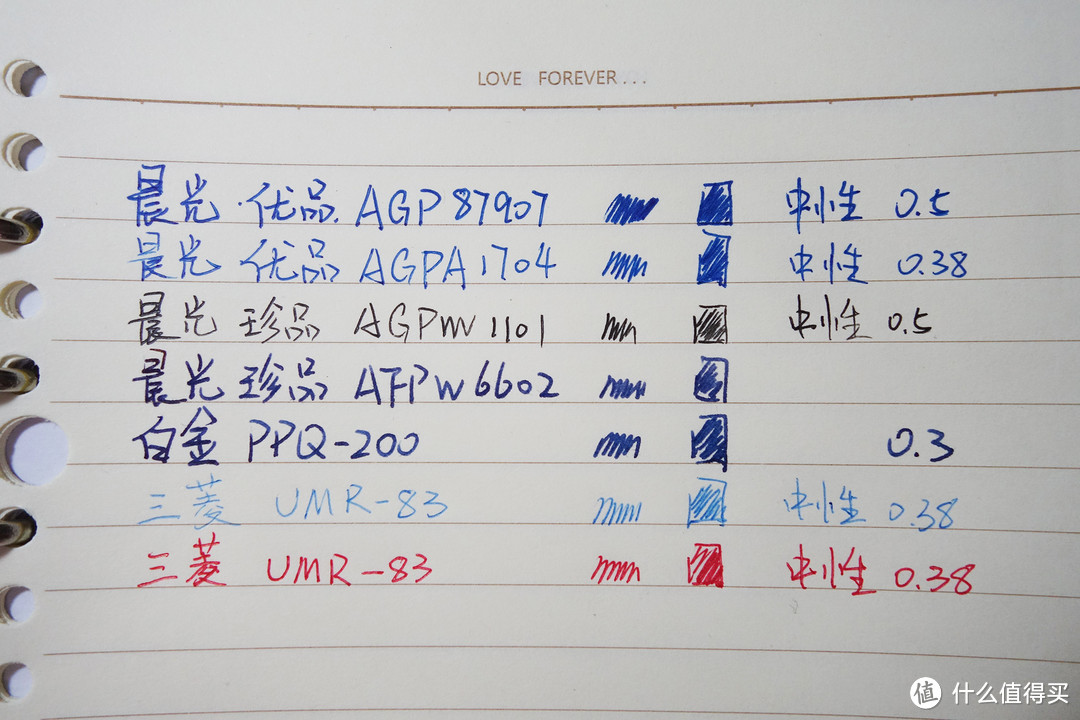 LOVE FOREVER...
晨光·优品 AGP87907 中性 0.5
晨光 优品 AGPA1704 中性 0.38
晨光 珍品 AGPW1101 中性 0.5
晨光 珍品 AFPW6602
白金 PPQ-200 0.3
三菱 UMR-83 中性 0.38
三菱 UMR-83 中性 0.38
值 什么值得买